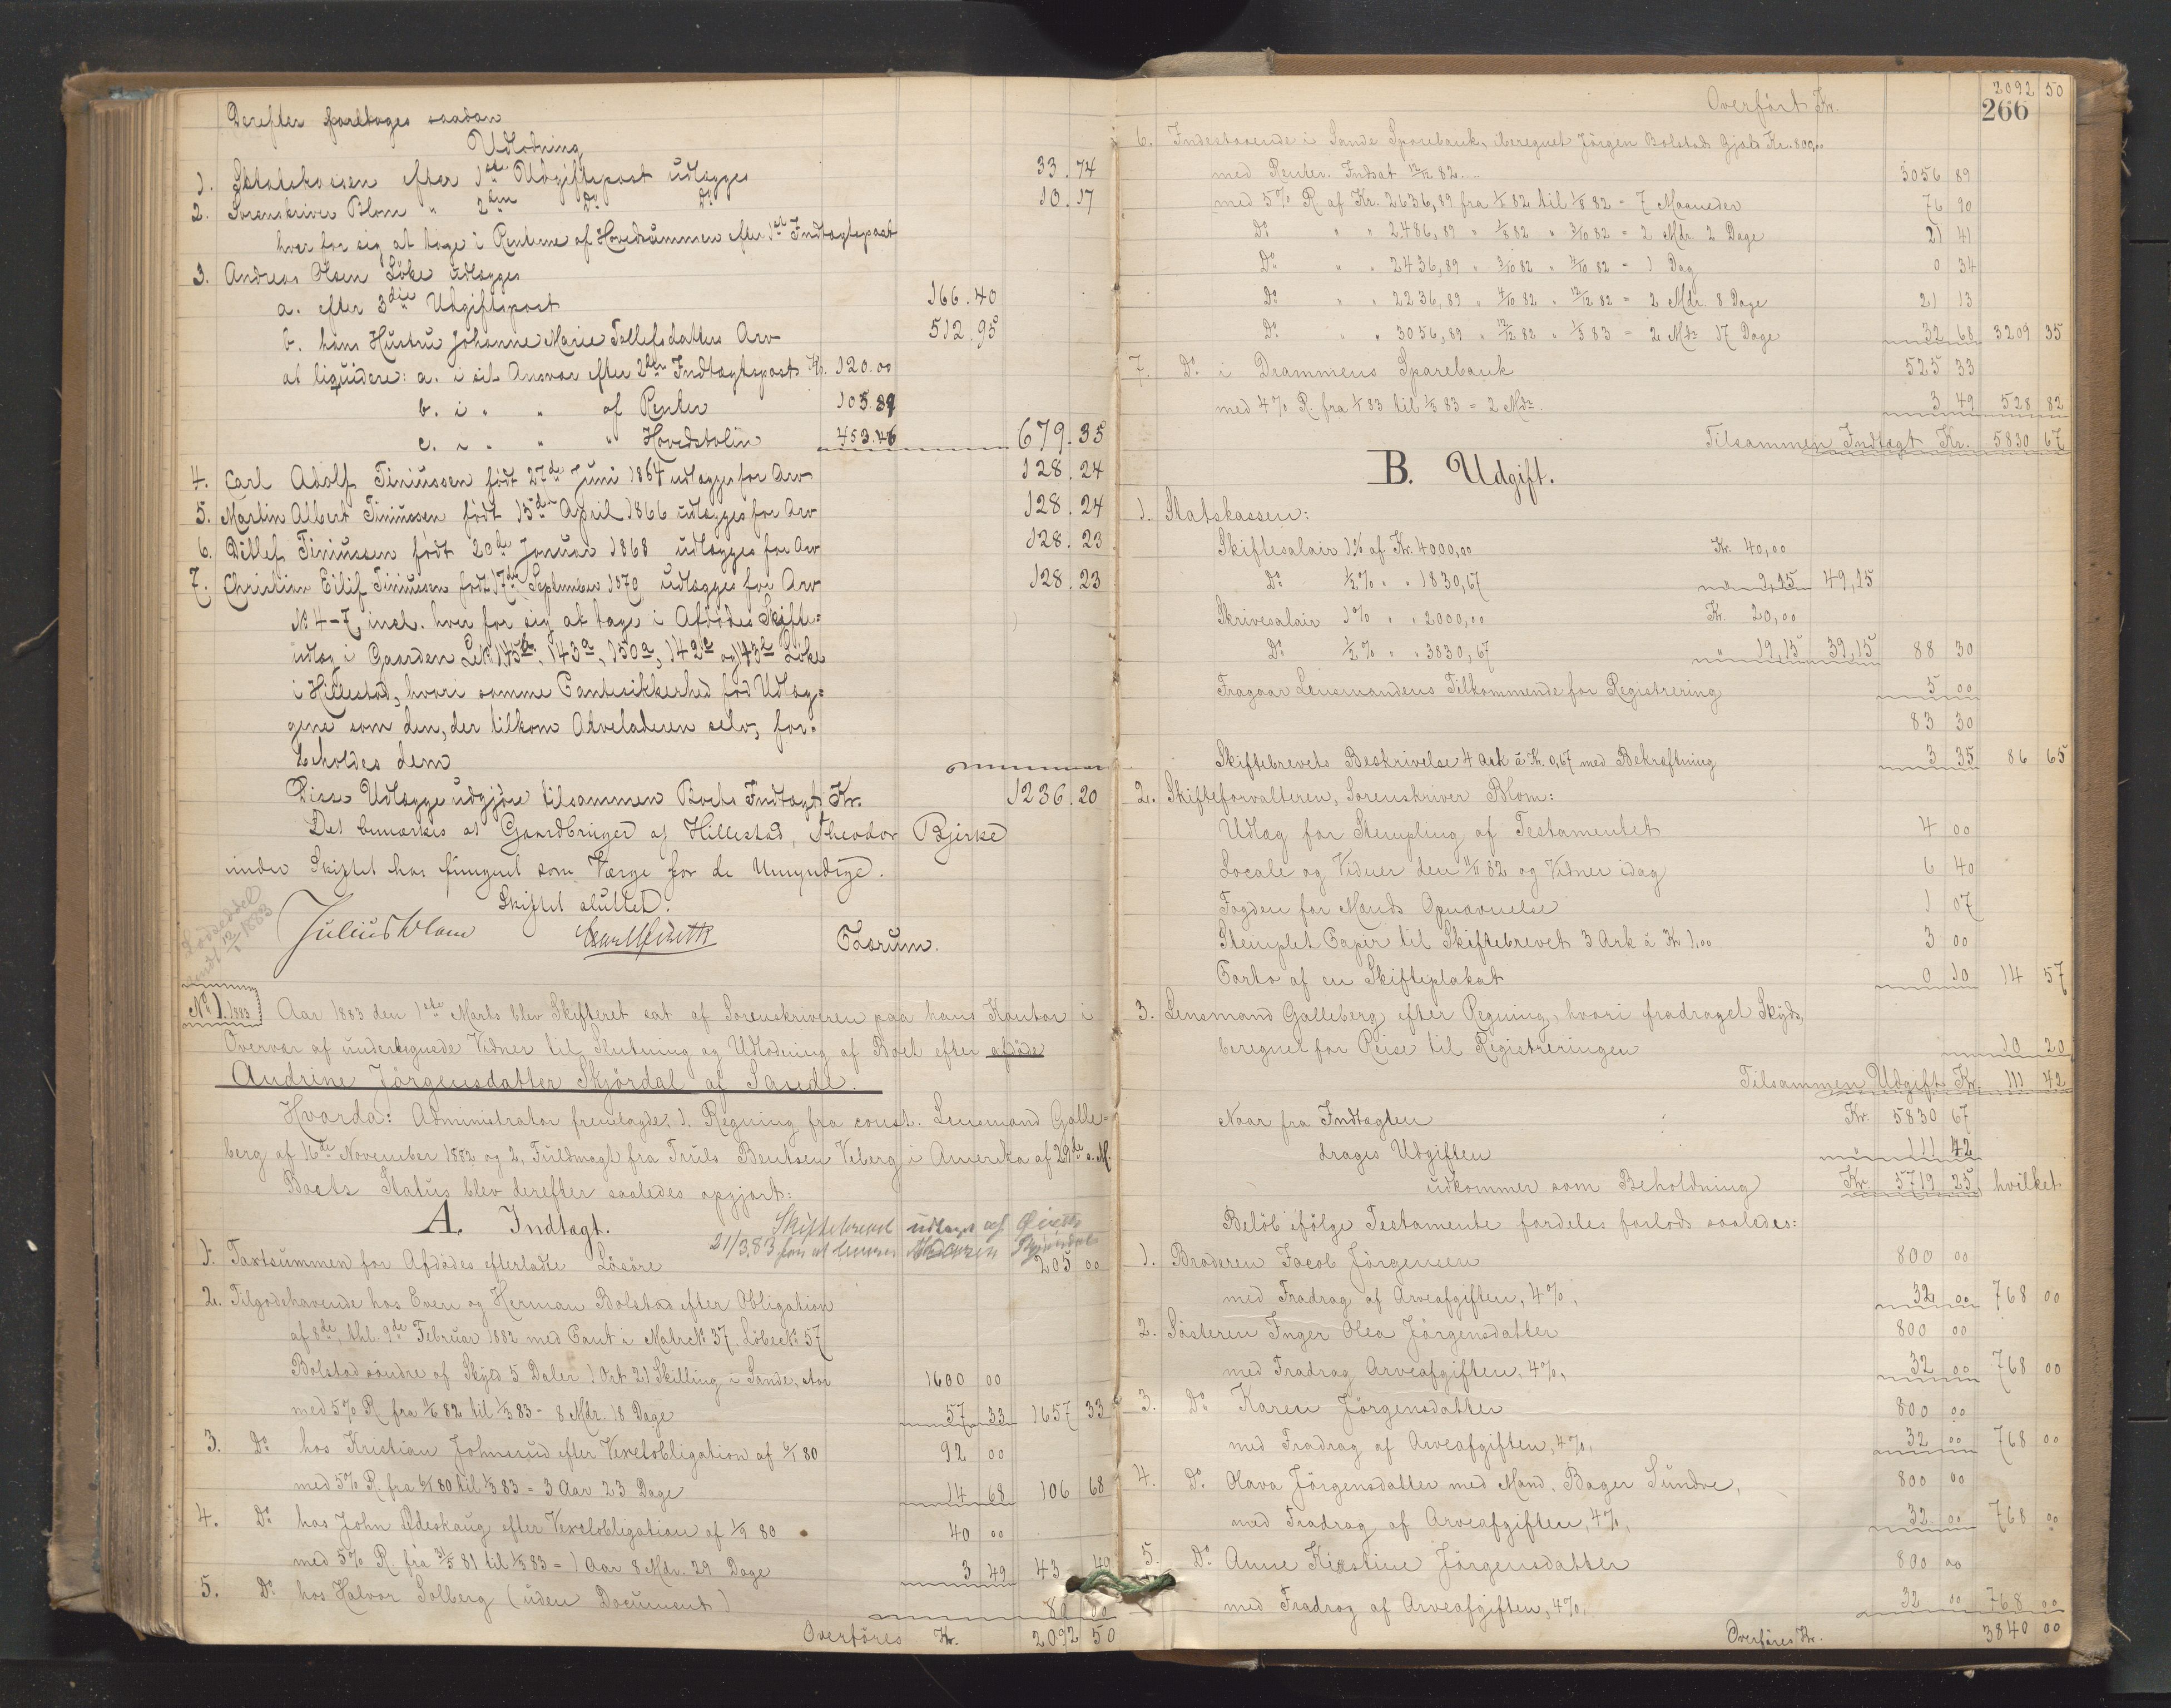 Derefter foretoges saadan
Udlodning
1. Statskassen efter 1ste Udgiftspost udlægges 33.74
2. Sorenskriver Blom " 2den Do Do 10.17
hver for sig at tage i Renterne af Hovedsummen efter 1ste Indtægtspost
3. Andreas Olsen Löke udlægges
a. efter 3die Udgiftspost 166.40
b. hans Hustru Johanne Marie Tollefsdatters Arv 512.95
at liquidere: a. i sit Ansvar efter 2den Indtægtspost Kr. 120.00
b. i " " af Renter 105.89
c. i " " " Hovedstolen 453.46 679.35
4. Carl Adolf Tiniussen födt 27de Juni 1864 udlægges for Arv 128.24
5. Martin Albert Tiniussen födt 15de April 1866 udlægges for Arv 128.24
6. Ditlef Tiniussen födt 20de Januar 1868 udlægges for Arv 128.23
7. Christian Eilif Tiniussen födt 17de September 1870 udlægges for Arv 128.23
No 4-7 incl. hver for sig at tage i Afdödes Skifte=
udlæg i Gaarden LNo 145b, 143a, 150a, 142c og 143d Löke
i Hillestad, hvori samme Pantesikkerhed for Udlæg=
gene som den, der tilkom Arveladeren selv, for=
beholdes dem
Disse Udlægge udgjöre tilsammen Boets Indtægt Kr. 1236.20
Det bemærkes at Gaardbruger af Hillestad, Theodor Bjerke
under Skiftet har fungeret som Værge for de Umyndige.
Skiftet sluttet.
Julius Blom
Thorum.
Lodseddel
12/1 1883
No 1. 1883 Aar 1883 den 1ste Marts blev Skifteret sat af Sorenskriveren paa hans Kontor i
Overvær af undertegnede Vidner til Slutning og Udlodning af Boet efter afdöde
Andrine Jörgensdatter Skjördal af Sande.
Hvorda: Administrator fremlagde, 1. Regning fra const. Lensmand Galle=
berg af 16de November 1882 og 2, Fuldmagt fra Truls Bentsen Veberg i Amerika af 29de s. M.
Boets Status blev derefter saaledes opgjort:
A. Indtægt.
Skiftebrevet udlaant af
21/3 83 for at
1. Taxtsummen for Afdödes efterladte Lösöre 205 00
2. Tilgodehavende hos Even og Herman Bolstad efter Obligation
af 8de, thl. 9de Februar 1882 med Pant i MatrNo 37. LöbeNo 57
Bolstad söndre af Skyld 5 Daler 1 Ort 21 Skilling i Sande, stor 1600 00
med 5% R fra 1/6 82 til 1/3 83 = 8 Mdr. 18 Dage 57 33 1657 33
3. Do hos Kristian Johnsrud efter Vexelobligation af 6/1 80 92 00
med 5% R. fra 6/1 80 til 1/3 83 = 3 Aar 23 Dage 14 68 106 68
4. Do hos John Ødeskaug efter Vexelobligation af 1/9 80 40 00
med 5% R. fra 31/5 81 til 1/3 83 = 1 Aar 8 Mdr. 29 Dage 3 49 43 49
5. Do hos Halvor Solberg (uden Document) 80 00
Overföres Kr. 2092 50
266
Overfört Kr. 2092 50
6. Indestaaende i Sande Sparebank, iberegnet Jörgen Bolstads Gjæld Kr. 800,00
med Renter. Indsat 12/12 82 3056 89
med 5% R af Kr. 2636,89 fra 1/1 82 til 1/8 82 = 7 Maaneder 76 90
Do " " 2486,89 " 1/8 82 " 3/10 82 = 2 Mdr 2 Dage 21 41
Do " " 2436,89 " 3/10 82 " 4/10 82 = 1 Dag 0 34
Do " " 2236,89 " 4/10 82 " 12/12 82 = 2 Mdr. 8 Dage 21 13
Do " " 3056,89 " 12/12 82 " 1/3 83 = 2 Mdr 17 Dage 32 68 3209 35
7. Do i Drammens Sparebank 525 33
med 4% R. fra 1/1 83 til 1/3 83 = 2 Mdr. 3 49 528 82
Tilsammen Indtægt Kr. 5830 67
B. Udgift.
1. Statskassen:
Skiftesalair 1% af Kr. 4000,00 Kr. 40,00
Do 1/2% " " 1830,67 " 9,15 49,15
Skrivesalair 1% " " 2000,00 Kr. 20,00
Do 1/2% " " 3830,67 " 19,15 39,15 88 30
Fragaar Lensmandens Tilkommende for Registrering 5 00
83 30
Skiftebrevets Beskrivelse 4 Ark à Kr. 0,67 med Bekræftning 3 35 86 65
2. Skifteforvalteren, Sorenskriver Blom:
Udlæg for Stempling af Testamentet 4 00
Locale og Vidner den 11/11 82 og Vidner idag 6 40
Fogden for Mænds Opnævnelse 1 07
Stemplet Papir til Skiftebrevet 3 Ark à Kr 1,00 3 00
Porto af en Skifteplakat 0 10 14 57
3. Lensmand Galleberg efter Regning, hvori fradraget Skyds,
beregnet for Reise til Registreringen 10 20
Tilsammen Udgift Kr. 111 42
Naar fra Indtægten Kr. 5830 67
drages Udgiften " 111 42
udkommer som Beholdning Kr. 5719 25, hvilket
Belöb ifölge Testamente fordeles forlods saaledes:
1. Broderen Jacob Jörgensen 800 00
med Fradrag af Arveafgiften, 4%, 32 00 768 00
2. Sösteren Inger Olea Jörgensdatter 800 00
med Fradrag Arveafgiften, 4%, 32 00 768 00
3. Do Karen Jörgensdatter 800 00
med Fradrag af Arveafgiften, 4%, 32 00 768 00
4. Do Olava Jörgensdatter med Mand, Bager Sundve, 800 00
med Fradrag af Arveafgiften, 4%, 32 00 768 00
5. Do Anne Kirstine Jörgensdatter 800 00
med Fradrag af Arveafgiften, 4%, 32 00 768 00
Overföres Kr. 3840 00